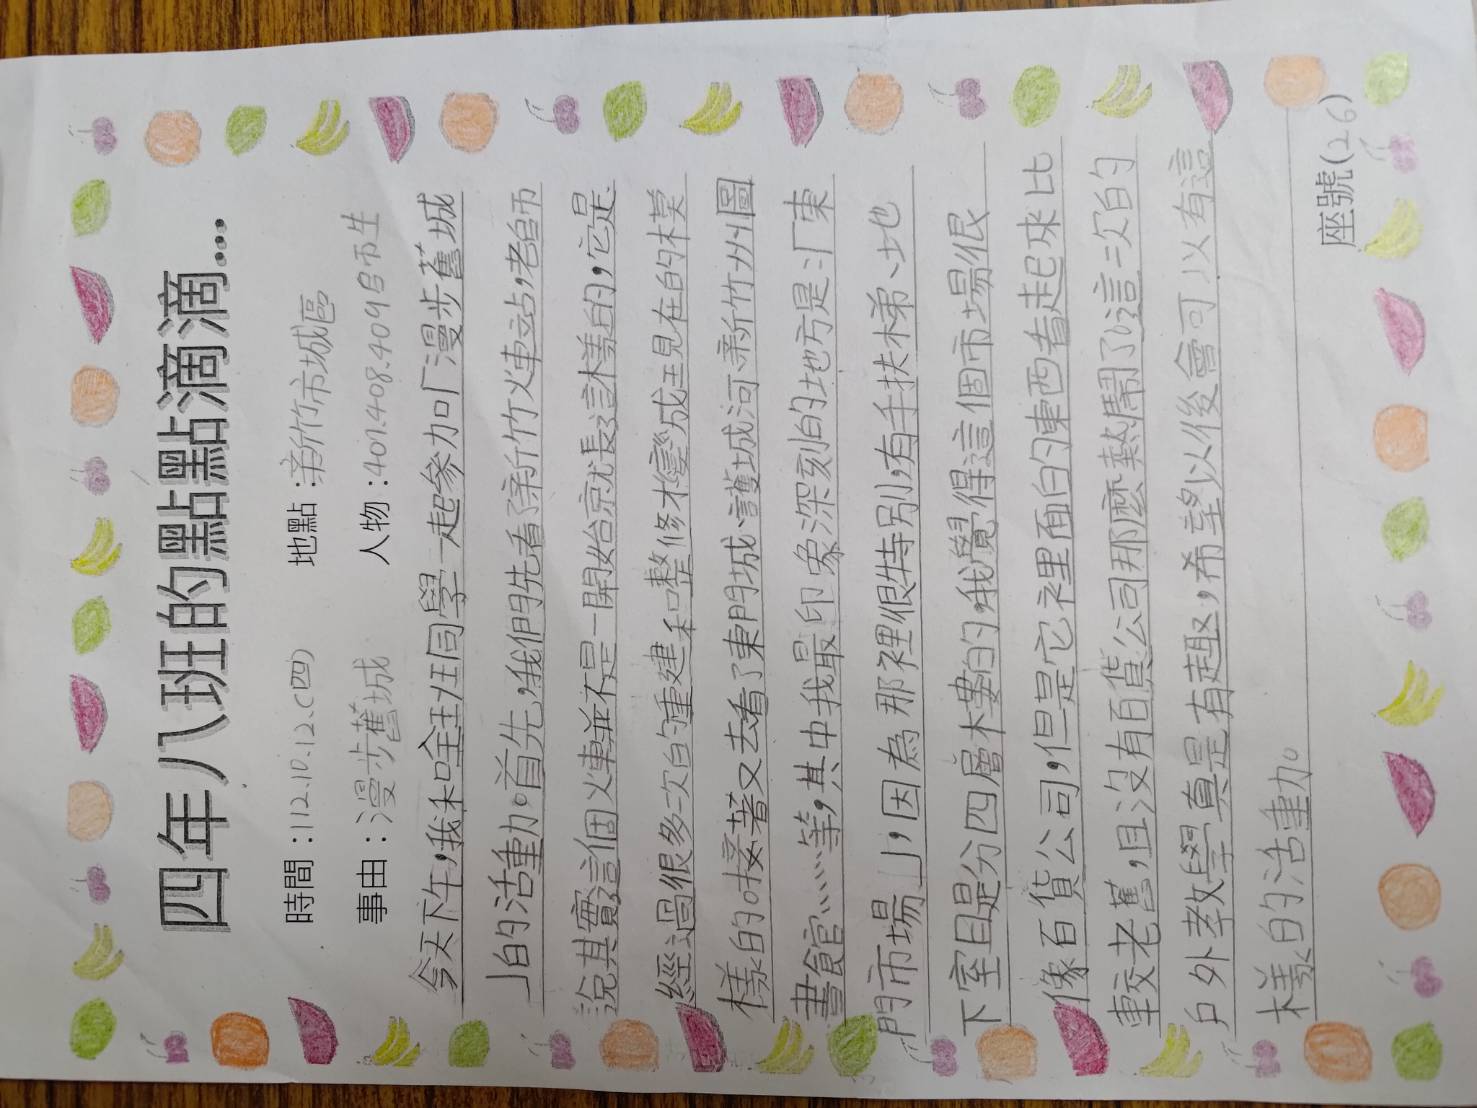 四年八班的點點滴滴...
時間：112.10.12.(四) 地點：新竹市城區
事由：漫步舊城 人物：407.408.409師生
今天下午，我和全班同學一起參加「漫步舊城
」的活動。首先，我們先看了新竹火車站，老師
說其實這個火車並不是一開始京就長這樣的，它是
經過很多次的重建和整修才變成現在的模
樣的。接著又去看了東門城、護城河、新竹州圖
書館……等，其中我最印象深刻的地方是「東
門市場」，因為那裡很特別，有手扶梯、地
下室且是分四層樓的，我覺得這個市場很
像百貨公司，但是它裡面的東西看起來比
較老舊，且沒有百貨公司那麼熱鬧了，這次的
戶外教學真是有趣，希望以後會可以有這
樣的活動。
座號(26)